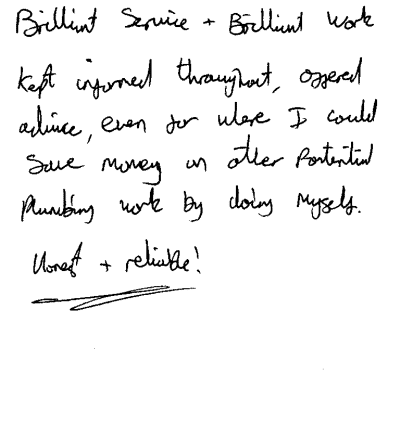 Brilliant Service + Brilliant work
Kept informed throughout, offered
advice, even for where I could
Save money on other Potential
Plumbing work by doing myself.
Honest + reliable!